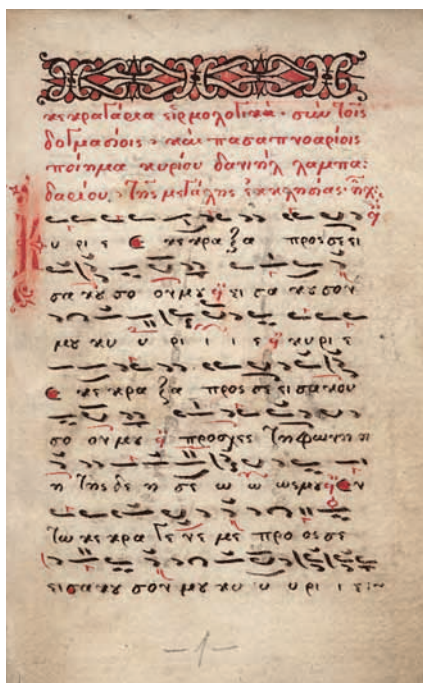 κεκραγάρια εἱρμολογικὰ· σὺν τοῖς
δογματίοις· καὶ πασαπνοαρίοις
ποίημα κυρίου δανιὴλ λαμπα:
δαρίου, τῆς μεγάλης ἐκκλησίας· ἦχ:
Κυ ρι ε ε κε κρα ξα προς σε ει
σα κου σο ον μου ει σα κου σον
μου κυ υ υ ρι ι ι ε κυ ρι ε
ε κε κρα ξα προς σε εισακου
σο ον μου προσχες τη φωνη η
η της δε η σε ω ω ως μου εν
τω κε κρα γε νε με προ ος σε
εισα κου σον μου κυ υ υ ρι ι ε:~
—1—